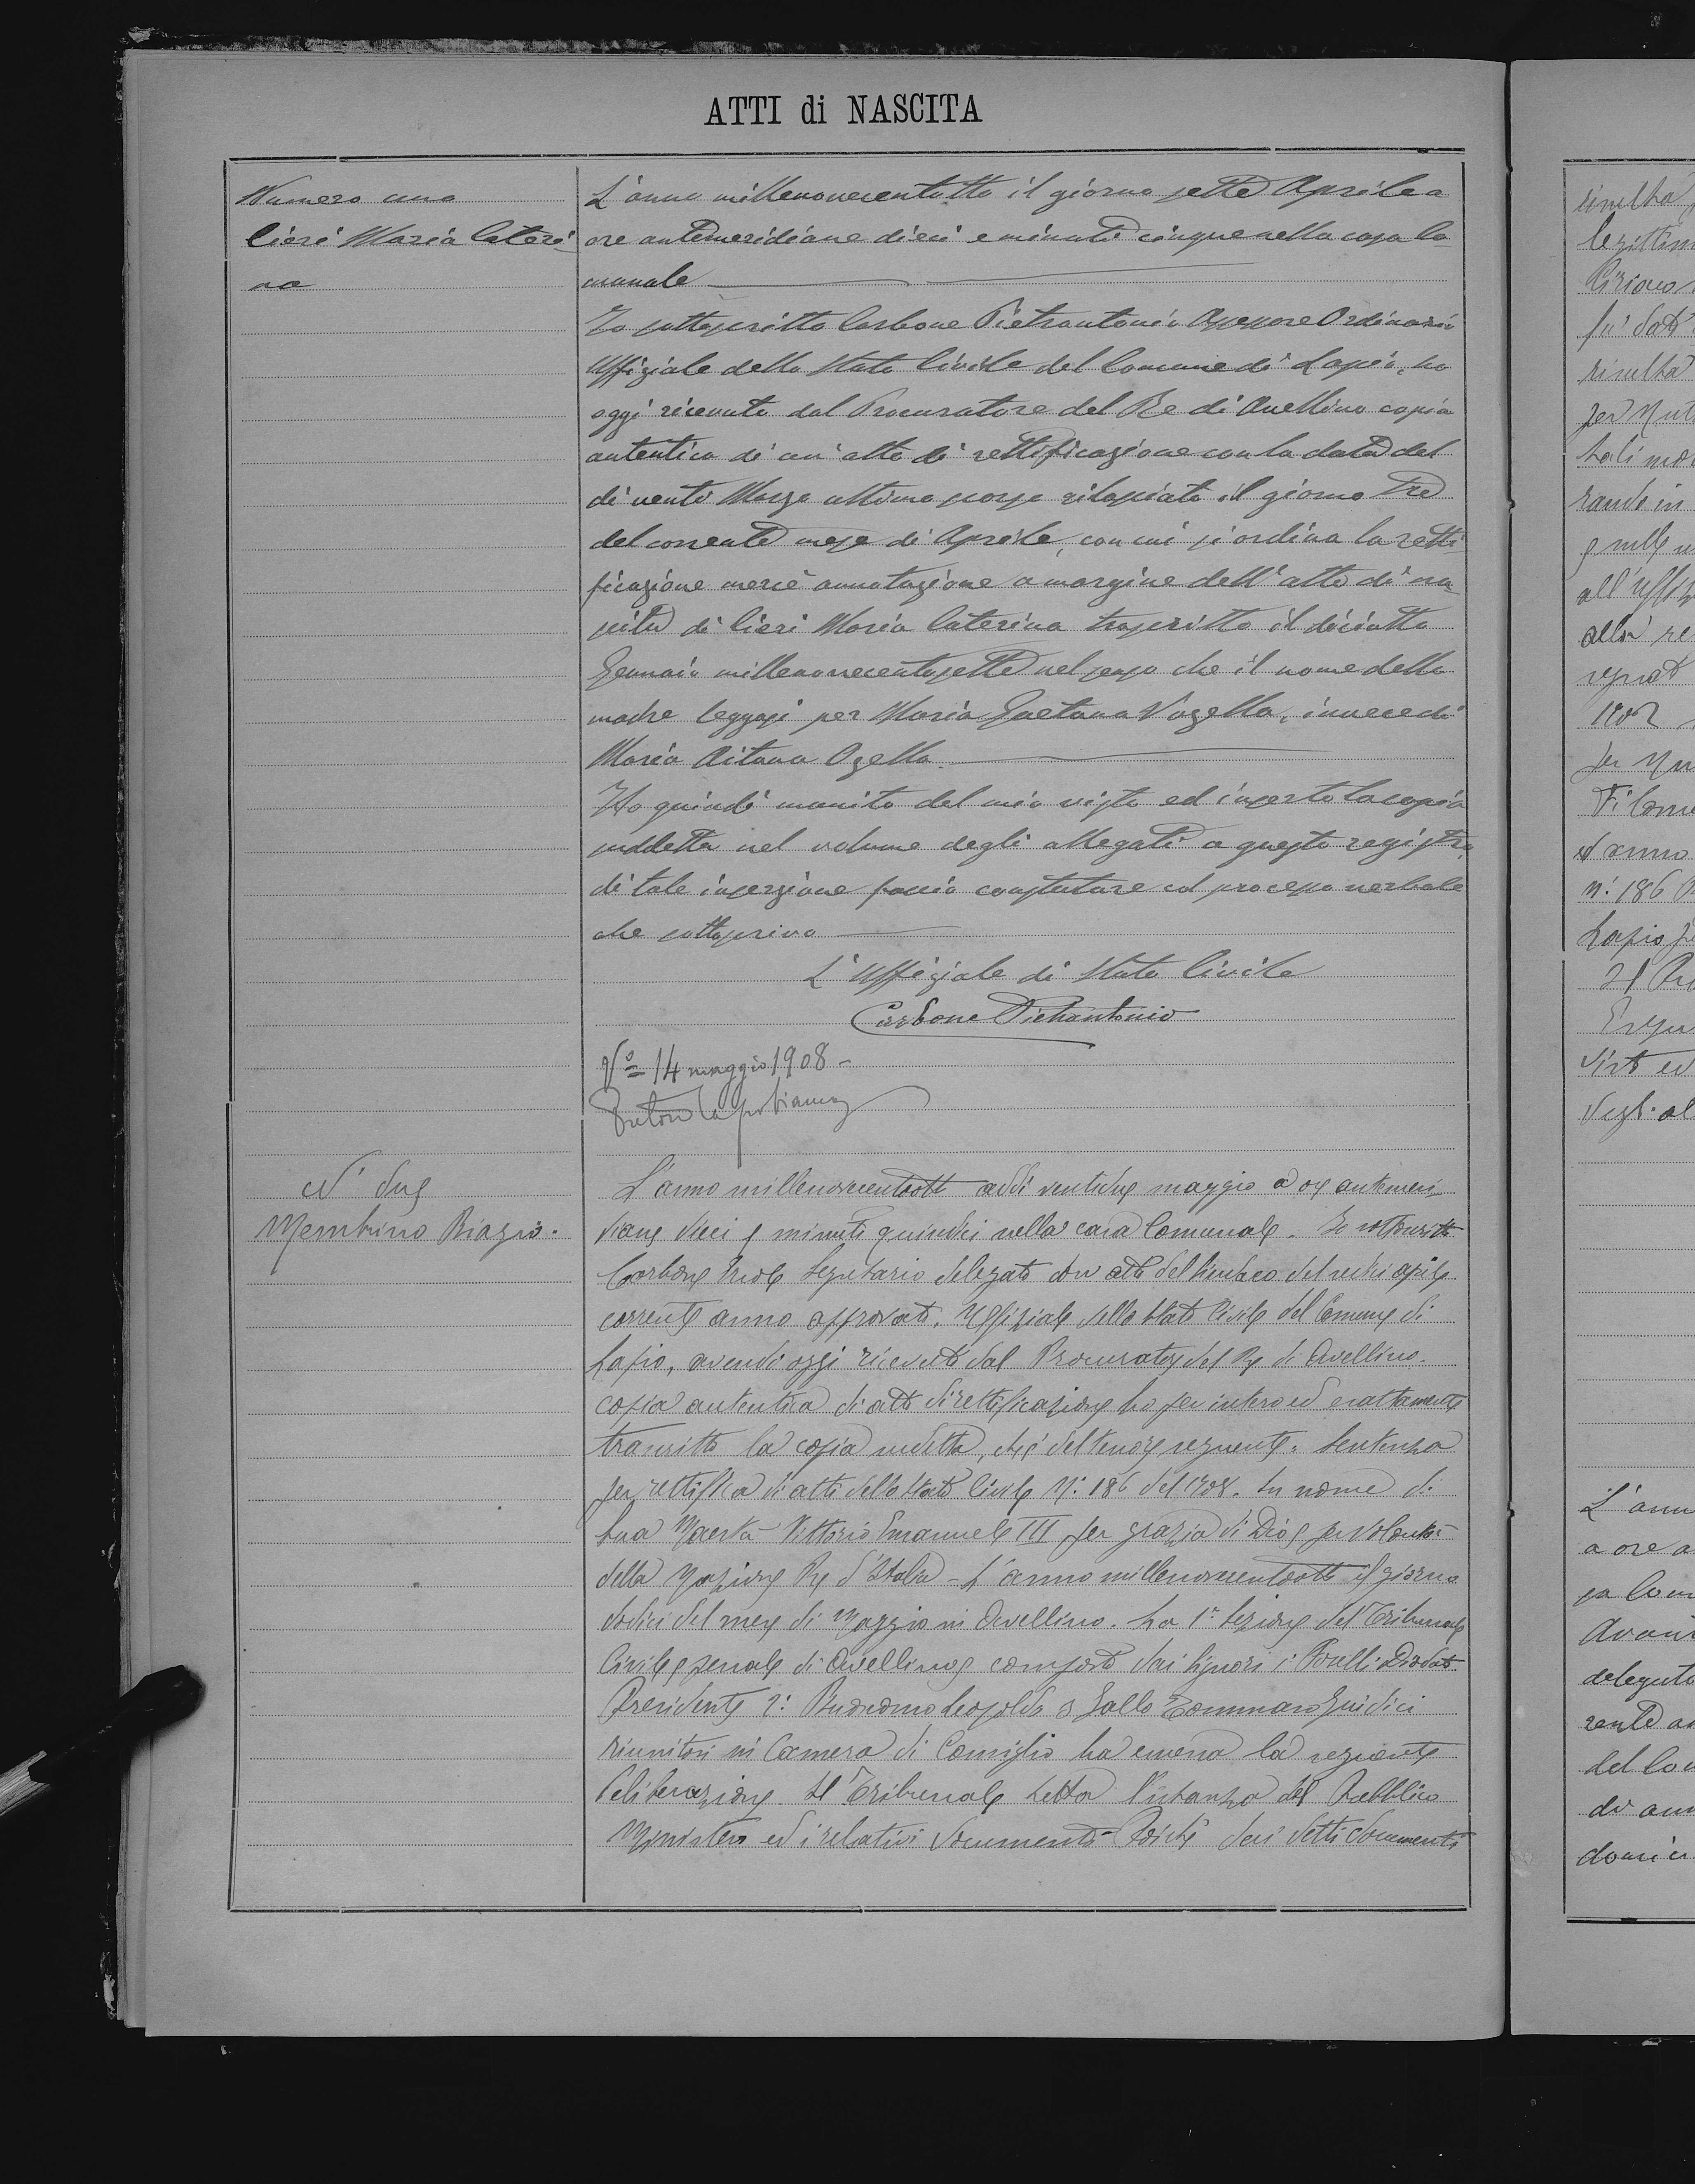 ATTI di NASCITA
Numero uno
Cieri Maria Cateri
na
L'anno millenovecentotto il giorno sette Aprile a
ore antemeridiane dieci e minuti cinque nella casa Co
munale
Io sottoscritto Carbone Pietrantonio Assessore Ordinario
Uffiziale dello Stato Civile del Comune di Lapio, ho
oggi ricevuto dal Procuratore del Re di Avellino copia
autentica di un'atto di rettificazione con la data del
di venti Marzo ultimo scorso rilasciato il giorno tre
del corrente mese di Aprile, con cui si ordina la retti
ficazione mercè annotazione a margine dell'atto di na
scita di Cieri Maria Caterina trascritto il diciotto
Gennaio millenovecentosette nel senso che il nome della
madre leggasi per Maria Gaetana Vozella, invece di
Maria Aitana Ozella.
Ho quindi munito del mio visto ed inserto la copia
suddetta nel volume degli allegati a questo registro,
di tale inserzione faccio constatare col processo verbale
che sottoscrivo
L'Uffiziale di Stato Civile
Carbone Pietrantonio
Vº 14 maggio 1908 -
N' due
Membrino Biagio.
L'anno millenovecentootto addì ventidue maggio a ore antimeri
diane dieci e minuti quindici nella casa Comunale. Io sottoscritto
Carbone Segretario delegato con atto del Sindaco del sedici aprile
corrente anno approvato, Uffiziale dello Stato Civile del Comune di
Lapio, avendo oggi ricevuto dal Procuratore del Re di Avellino
copia autentica di atto di rettificazione ho per intero ed esattamente
trascritto la copia suddetta, che è del tenore seguente: Sentenza
per rettifica di atti dello Stato Civile N: 186 del 1908. In nome di
Sua Maestà Vittorio Emanuele III per grazia di Dio e per volontà
della Nazione Re d'Italia - L'anno millenovecentootto il giorno
dodici del mese di Maggio in Avellino. La 1ª Sezione del Tribunale
Civile e penale di Avellino composto dai Signori Diodato
Presidente 2: Buonomo Leopoldo 3 Gallo Tommaso Giudici
riunitosi in Camera di Consiglio ha emesso la seguente
deliberazione Il Tribunale Letta l'istanza del Pubblico
Ministero ed i relativi documenti - Poichè dai detti documenti